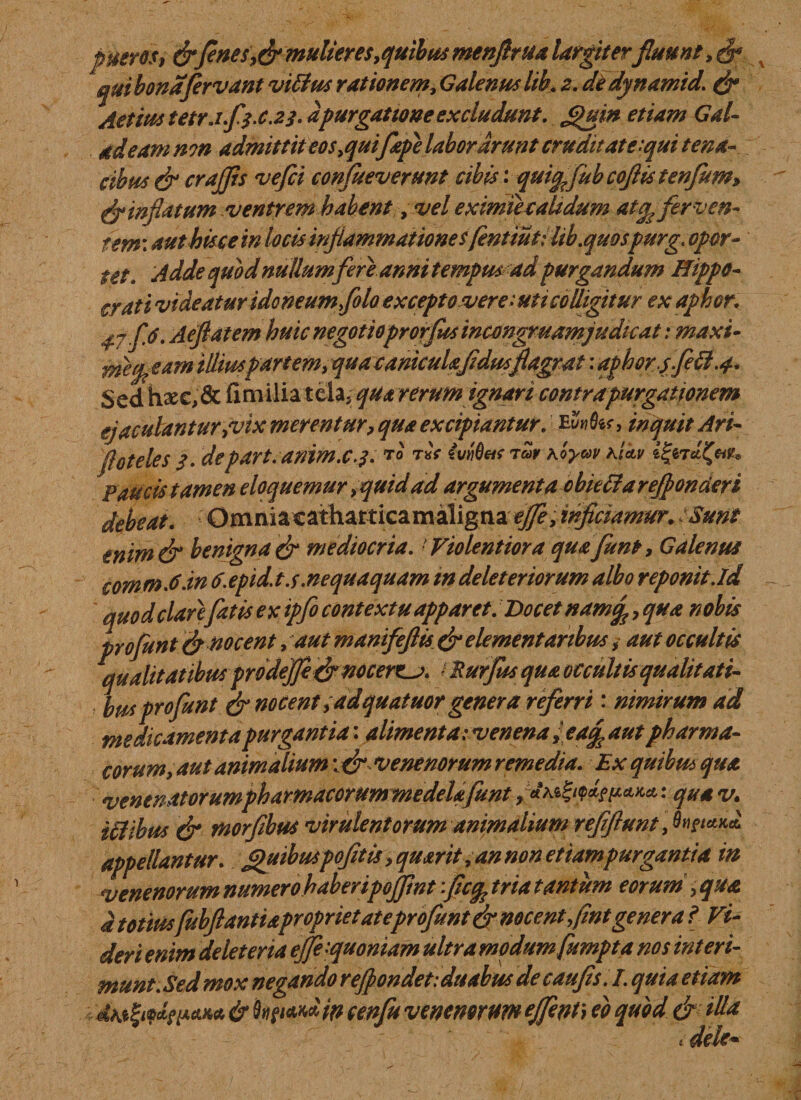 pueros, & senes, & mulieres, quibus menstrua largiter fluunt, &
qui bonâ servant victus rationem, Galenus lib. 2. de dynamid. &
Aetius tetr.1.s.3.c.23. à purgatione excludunt. Quin etiam Gal-
adeam non admittit eos, qui sæpè laborârunt cruditate: qui tena-
cibus & crassis vesci consueverunt cibis: quiq; sub costis tensum,
& inflatum ventrem habent, vel eximiè calidum atq; ferven-
tem: aut hisce in locis inflammationes sentiût: lib. quos purg. opor-
tet. Adde quòd nullum ferè anni tempus ad purgandum Hippo-
crati videatur idoneum, solo excepto vere: uti colligitur ex aphor.
47 s.6. Aestatem huic negotio prorsus incongruam judicat: maxi-
mèq; eam illius partem, qua caniculæ sidus flagrat: aphor 5. sect.4.
Sed hæc, & similia tela, quæ rerum ignari contra purgationem
ejaculantur, vix merentur, quæ excipiantur. Εὐηθες, inquit Ari-
stoteles 3. de part. anim.c.3. τὸ τὰς ἐυήθεις τῶν λόγων λίαν ἐξετάζειν.
Paucis tamen eloquemur, quid ad argumenta obiecta responderi
debeat. Omnia cathartica maligna esse, inficiamur. Sunt
enim & benigna & mediocria. Violentiora quæ sunt, Galenus
comm.6.in 6.epid.t.5. nequaquam in deleteriorum albo reponit. Id
quod clarè satis ex ipso contextu apparet. Docet namq;, quæ nobis
prosunt & nocent, aut manifestis & elementaribus, aut occultis
qualitatibus prodesse & nocere. Rursus quæ occultis qualitati-
bus prosunt & nocent, ad quatuor genera referri: nimirum ad
medicamenta purgantia: alimenta: venena, eaq; aut pharma-
corum, aut animalium: & venenorum remedia. Ex quibus quæ
venenatorum pharmacorum medelæ sunt, ἀλεξιφάρμακα: quæ v.
ictibus & morsibus virulentorum animalium resistunt, θηριακὰ
appellantur. Quibus positis, quærit, an non etiam purgantia in
venenorum numero haberi possint: sicq; tria tantùm eorum, quæ
à totius substantiæ proprietate prosunt & nocent, sint genera? Vi-
deri enim deleteria esse: quoniam ultra modum sumpta nos interi-
munt. Sed mox negando respondet: duabus de causis. I. quia etiam
ἀλεξιφάρμακα & θηριακὰ in censu venenorum essent; eò quòd & illa
dele-